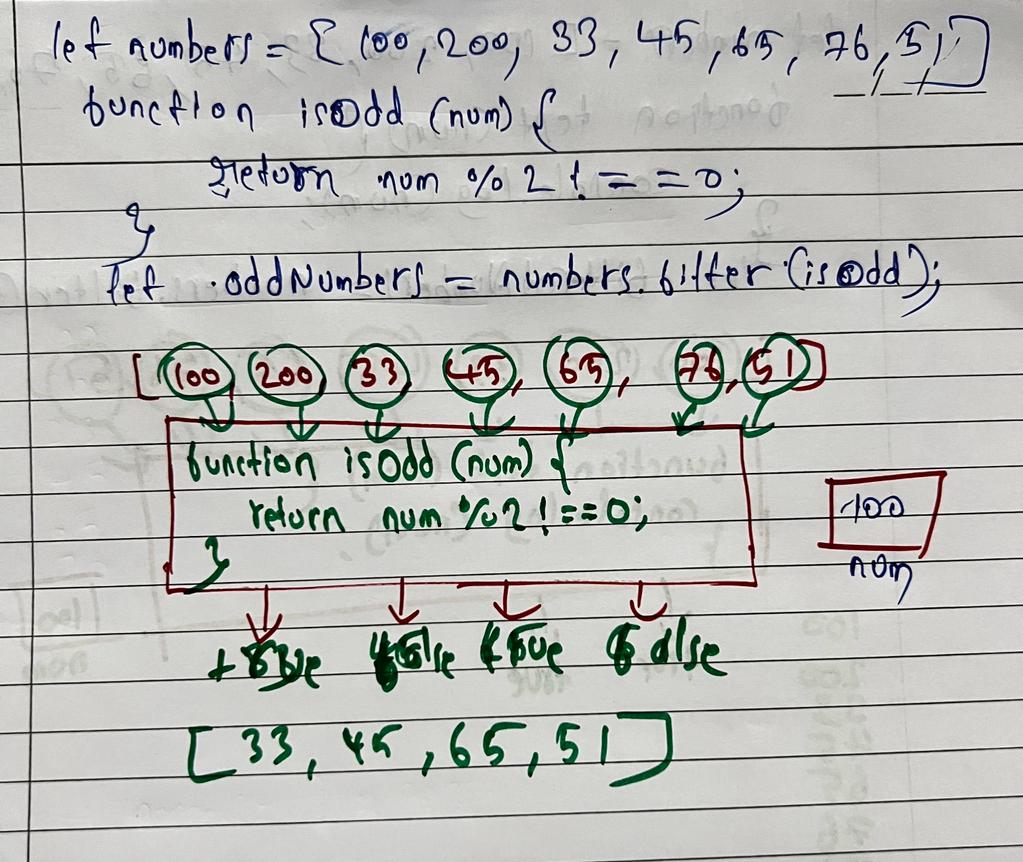 let numbers = [ 100, 200, 33, 45, 65, 76, 51 ]
function isOdd (num) {
return num % 2 ! = = 0;
}
let oddNumbers = numbers.filter (isOdd);
[ 100, 200, 33, 45, 65, 76, 51 ]
function isOdd (num) {
return num % 2 ! == 0;
}
100
num
true false true false
[ 33, 45, 65, 51 ]